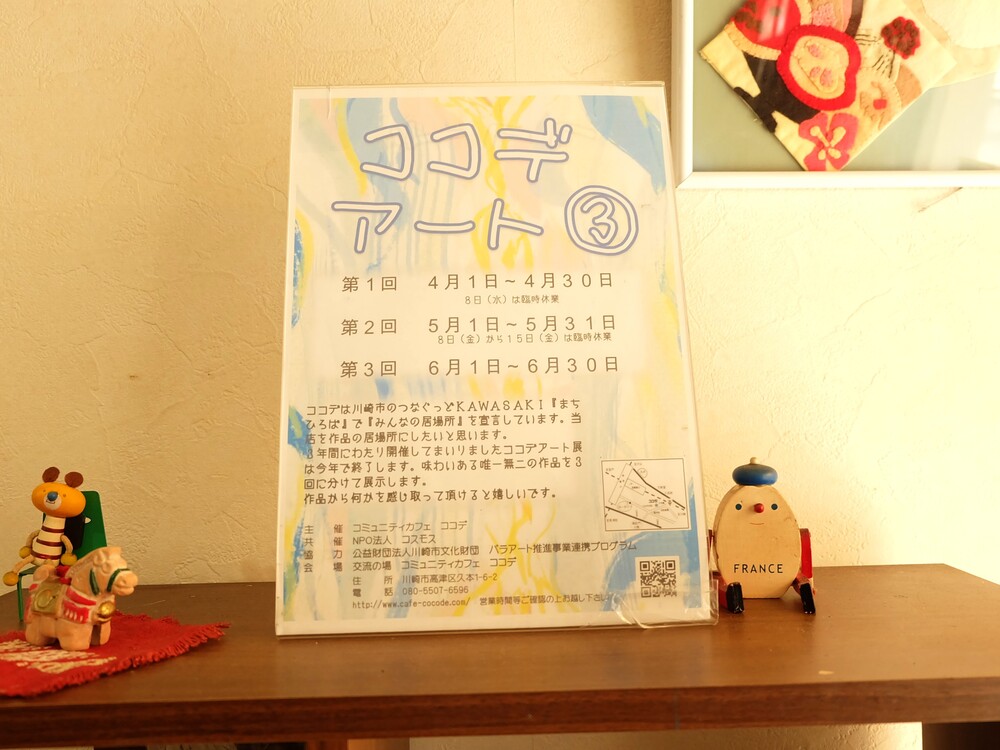 ココデ
アート③
第1回 4月1日~4月30日
8日(水)は臨時休業
第2回 5月1日~5月31日
8日(金)から15日(金)は臨時休業
第3回 6月1日~6月30日
ココデは川崎市のつなぐっとKAWASAKI『まち
ひろば』で『みんなの居場所』を宣言しています。当
店を作品の居場所にしたいと思います。
3年間にわたり開催してまいりましたココデアート展
は今年で終了します。味わいある唯一無二の作品を3
回に分けて展示します。
作品から何かを感じ取って頂けると嬉しいです。
主 催 コミュニティカフェ ココデ
共 催 NPO法人 コスモス
協 力 公益財団法人川崎市文化財団 パラアート推進事業連携プログラム
会 場 交流の場 コミュニティカフェ ココデ
住 所 川崎市高津区久本1-6-2
電 話 080-5507-6596
http://www.cafe-cocode.com/ 営業時間等ご確認の上お越し下さい
FRANCE